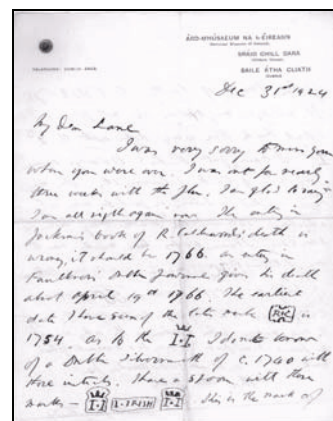 ÁRD-MHÚSAEUM NA h-ÉIREANN
(National Museum of Ireland)
SRÁID CHILL DARA
(Kildare Street)
BAILE ÁTHA CLIATH
(Dublin)
Dec 31st 1924
My dear Lane
I was very sorry to miss you
when you were over. I was out for nearly
three weeks with the flu. I am glad to say
I am all right again now. The entry in
Jackson's book of R. Calderwood's death is
wrong, it should be 1766. An entry in
Faulkner's Dublin Journal gives his death
about April 19th 1766. The earliest
date I have seen of the later mark R·C is
1754. As to the I·I I do not know
of a Dublin silversmith of c. 1740 with
these initials. I have a spoon with these
marks — I·I I·IRISH I·I. This is the mark of